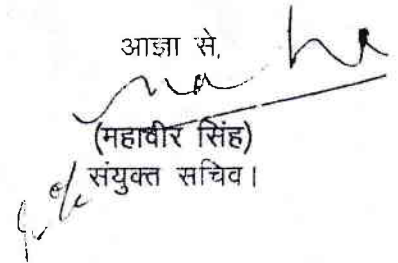 आज्ञा से,
(महावीर सिंह)
संयुक्त सचिव।